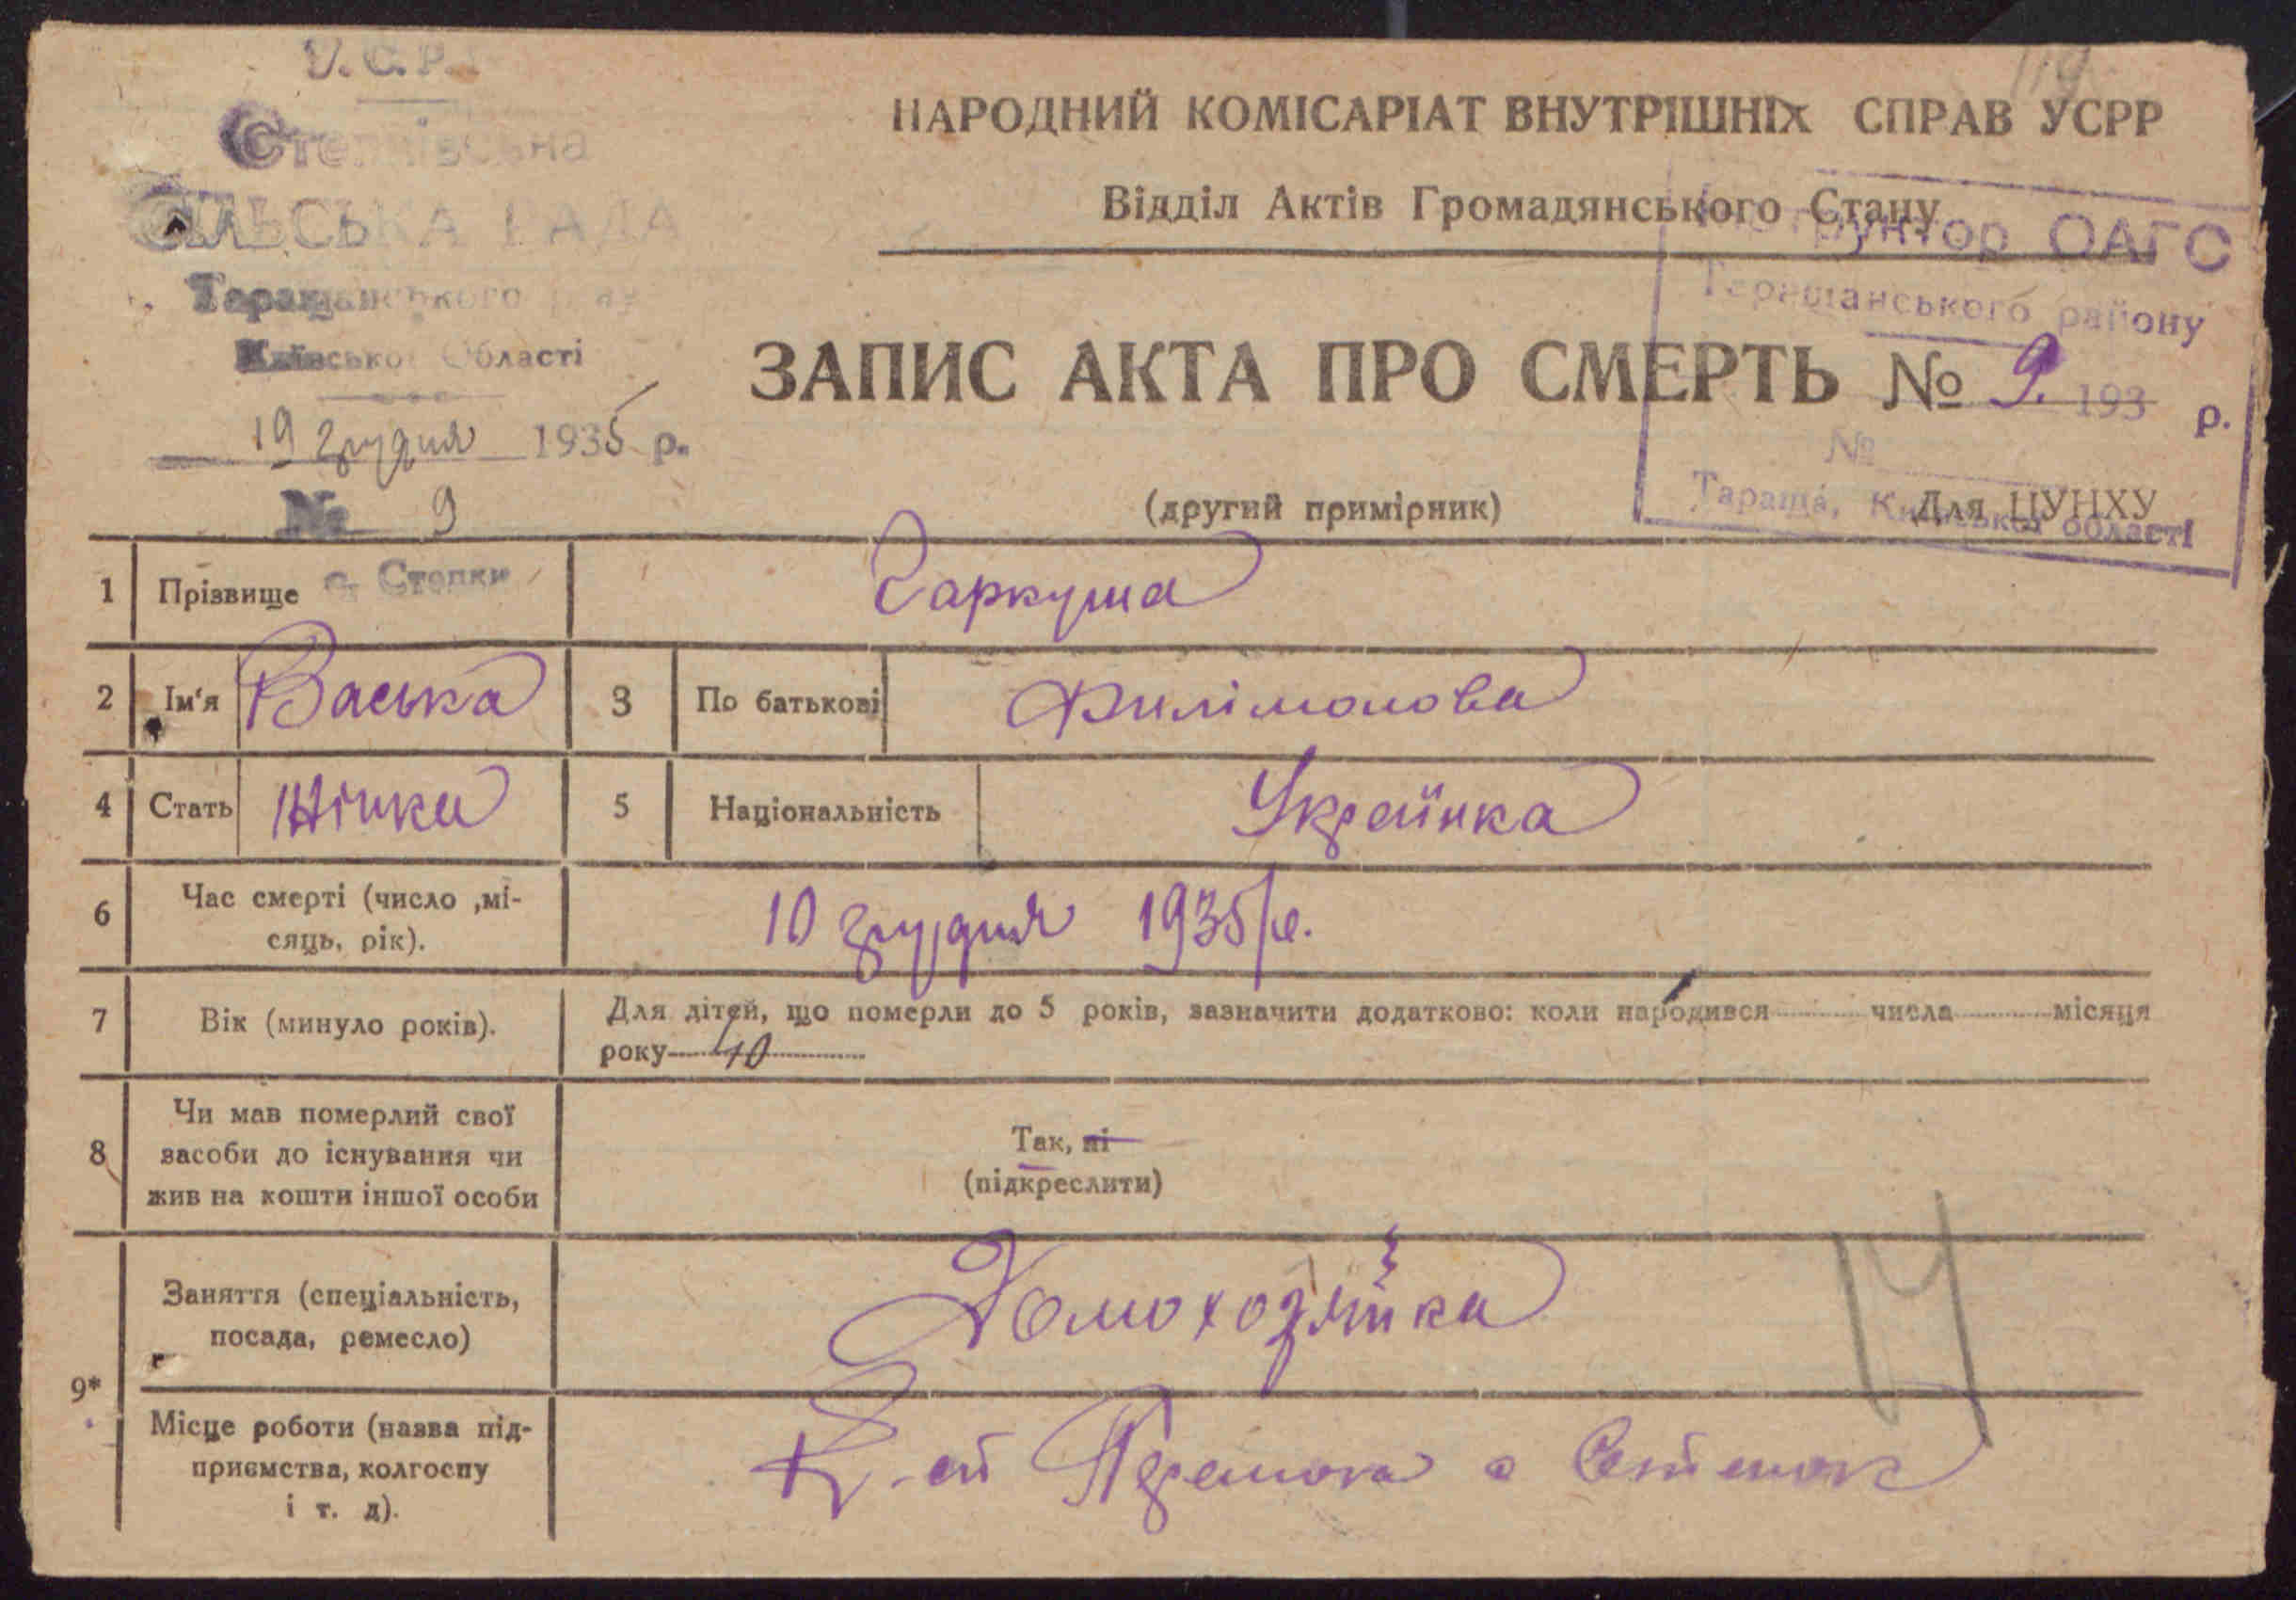 У.С.Р.Р.
Степківська
СІЛЬСЬКА РАДА
Таращанського р-ну
Київської Області
19 грудня 1935 р.
№ 9
с. Степки
НАРОДНИЙ КОМІСАРІАТ ВНУТРІШНІХ СПРАВ УСРР
Відділ Актів Громадянського Стану
Інструктор ОАГС
Таращанського району
193 р.
№
Тараща, Київської області
ЗАПИС АКТА ПРО СМЕРТЬ № 9.
(другий примірник)
Для ЦУНХУ
1 Прізвище Гаркуша
2 Ім'я Васька 3 По батькові Филімонова
4 Стать Жінка 5 Національність Українка
6 Час смерті (число ,мі-
сяць, рік).
10 грудня 1935 р.
7 Вік (минуло років).
Для дітей, що померли до 5 років, зазначити додатково: коли народився числа місяця
року 40
8 Чи мав померлий свої
засоби до існування чи
жив на кошти іншої особи
Так, ні
(підкреслити)
9* Заняття (спеціальність,
посада, ремесло)
Домохозяйка
Місце роботи (назва під-
приємства, колгоспу
і т. д).
14